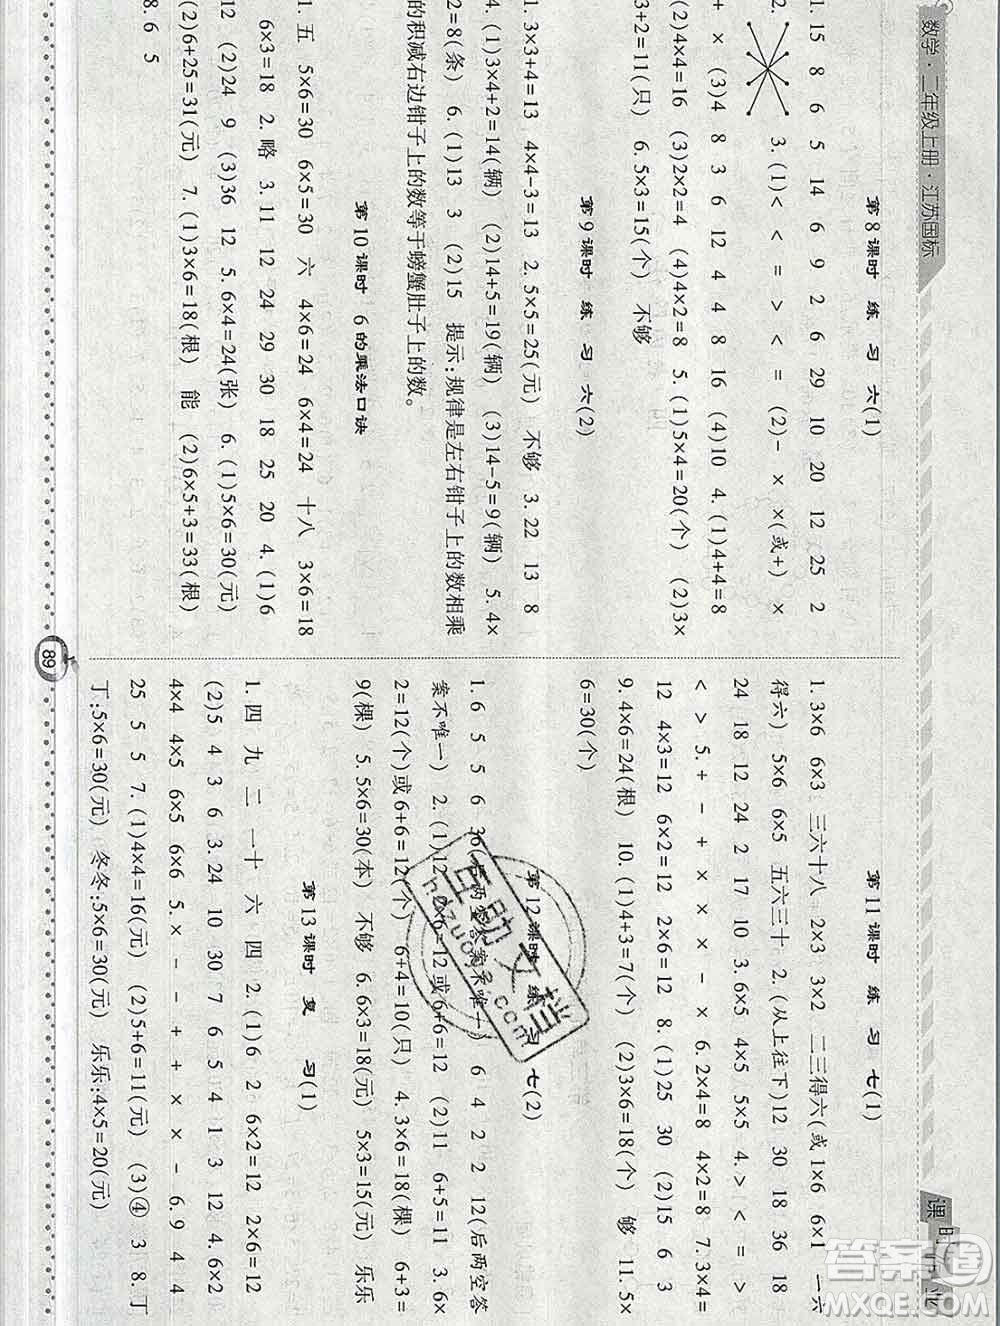 数学·二年级上册·江苏国标
课时作业
第8课时 练 习 六(1)
1. 15 8 6 5 14 6 9 2 6 29 10 20 12 25 2
2.
3. (1)< < = > < = (2)- × ×(或+) ×
+ × (3)4 8 3 6 12 4 4 8 16 (4)10 4. (1)4+4=8
(2)4×4=16 (3)2×2=4 (4)4×2=8 5. (1)5×4=20(个) (2)3×
3+2=11(只) 6. 5×3=15(个) 不够
第9课时 练 习 六(2)
1. 3×3+4=13 4×4-3=13 2. 5×5=25(元) 不够 3. 22 13 8
4. (1)3×4+2=14(辆) (2)14+5=19(辆) (3)14-5=9(辆) 5. 4×
2=8(条) 6. (1)13 3 (2)15 提示:规律是左右钳子上的数相乘
的积减右边钳子上的数等于螃蟹肚子上的数。
第10课时 6的乘法口诀
1. 五 5×6=30 6×5=30 六 4×6=24 6×4=24 十八 3×6=18
6×3=18 2. 略 3. 11 12 24 29 30 18 25 20 4. (1)6
12 (2)24 9 (3)36 12 5. 6×4=24(张) 6. (1)5×6=30(元)
(2)6+25=31(元) 7. (1)3×6=18(根) 能 (2)6×5+3=33(根)
8. 6 5
第11课时 练 习 七(1)
1. 3×6 6×3 三六十八 2×3 3×2 二三得六(或1×6 6×1 一六
得六) 5×6 6×5 五六三十 2. (从上往下)12 30 18 36 18
24 18 12 24 2 17 10 3. 6×5 4×5 5×5 4. > < = >
< > 5. + - + × × - × 6. 2×4=8 4×2=8 7. 3×4=
12 4×3=12 6×2=12 2×6=12 8. (1)25 30 (2)15 6 3
9. 4×6=24(根) 10. (1)4+3=7(个) (2)3×6=18(个) 够 11. 5×
6=30(个)
第12课时 练 习 七(2)
1. 6 5 5 6 36(后两空答案不唯一) 6 4 2 2 12(后两空答
案不唯一) 2. (1)12 2×6=12或6+6=12 (2)11 6+5=11 3. 6×
2=12(个)或6+6=12(个) 6+4=10(只) 4. 3×6=18(棵) 6+3=
9(棵) 5. 5×6=30(本) 不够 6. 6×3=18(元) 5×3=15(元) 乐乐
第13课时 复 习(1)
1. 四 九 二 一十 六 四 2. (1)6 2 6×2=12 2×6=12
(2)5 4 3 6 3. 24 10 30 7 6 5 4 1 3 12 4. 6×2
4×4 4×5 6×5 6×6 5. × - - + + × × - 6. 9 4 4
25 5 5 7. (1)4×4=16(元) (2)5+6=11(元) (3)④ 3 8. 丁
丁:5×6=30(元) 冬冬:5×6=30(元) 乐乐:4×5=20(元)
89
互助文档
hdzuoye.com
答案圈
MXQE.COM